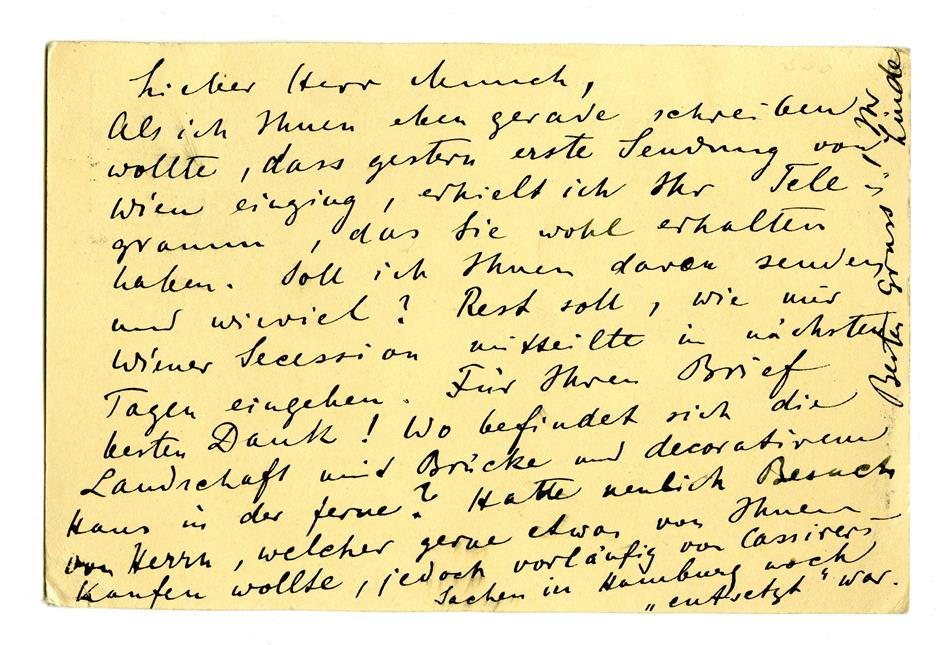 Lieber Herr Munch,
Als ich Ihnen eben gerade schreiben
wollte, dass gestern erste Sendung von
Wien einging, erhielt ich Ihr Tele
gramm, das Sie wohl erhalten
haben. Soll ich Ihnen davon senden
und wieviel? Rest soll, wie mir
Wiener Secession mitteilte in nächsten
Tagen eingehen. Für Ihren Brief
besten Dank! Wo befindet sich die
Landschaft mit Brücke und decorativem
Haus in der ferne? Hatte neulich Besuch
von Herrn, welcher gerne etwas von Ihnen
kaufen wollte, jedoch vorläufig von Cassirers
Sachen in Hamburg noch
„entsetzt" war.
Besten Gruss Ihr
Linde